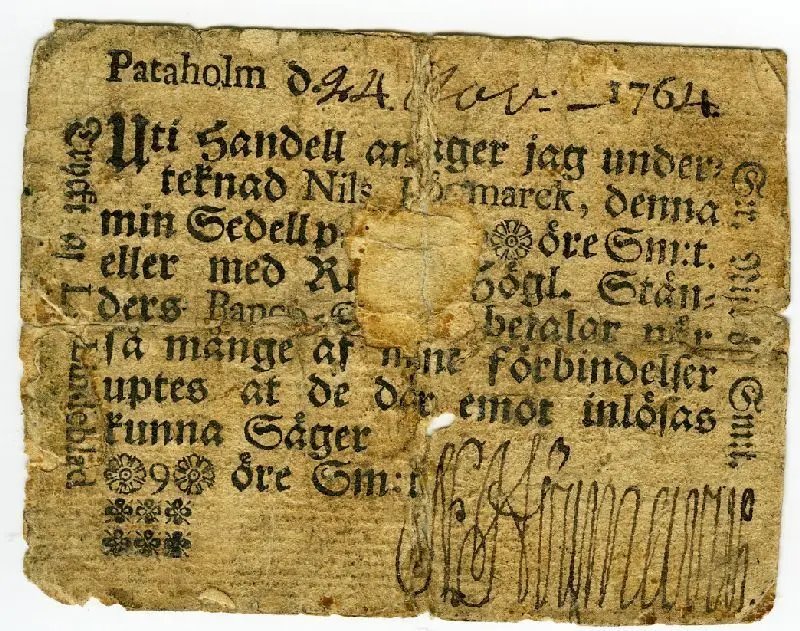 Pataholm d. 24. Nov: 1764.
Uti Handell antager jag under-
teknad Nils Högmarck, denna
min Sedell öre Sm:t.
eller med Högl. Stän-
ders Banco betalar när
så mänge af mine förbindelser
uptes at de dar emot inlösas
kunna Säger
9 öre Sm:t
Tryckt af Lindeblad
Smt.